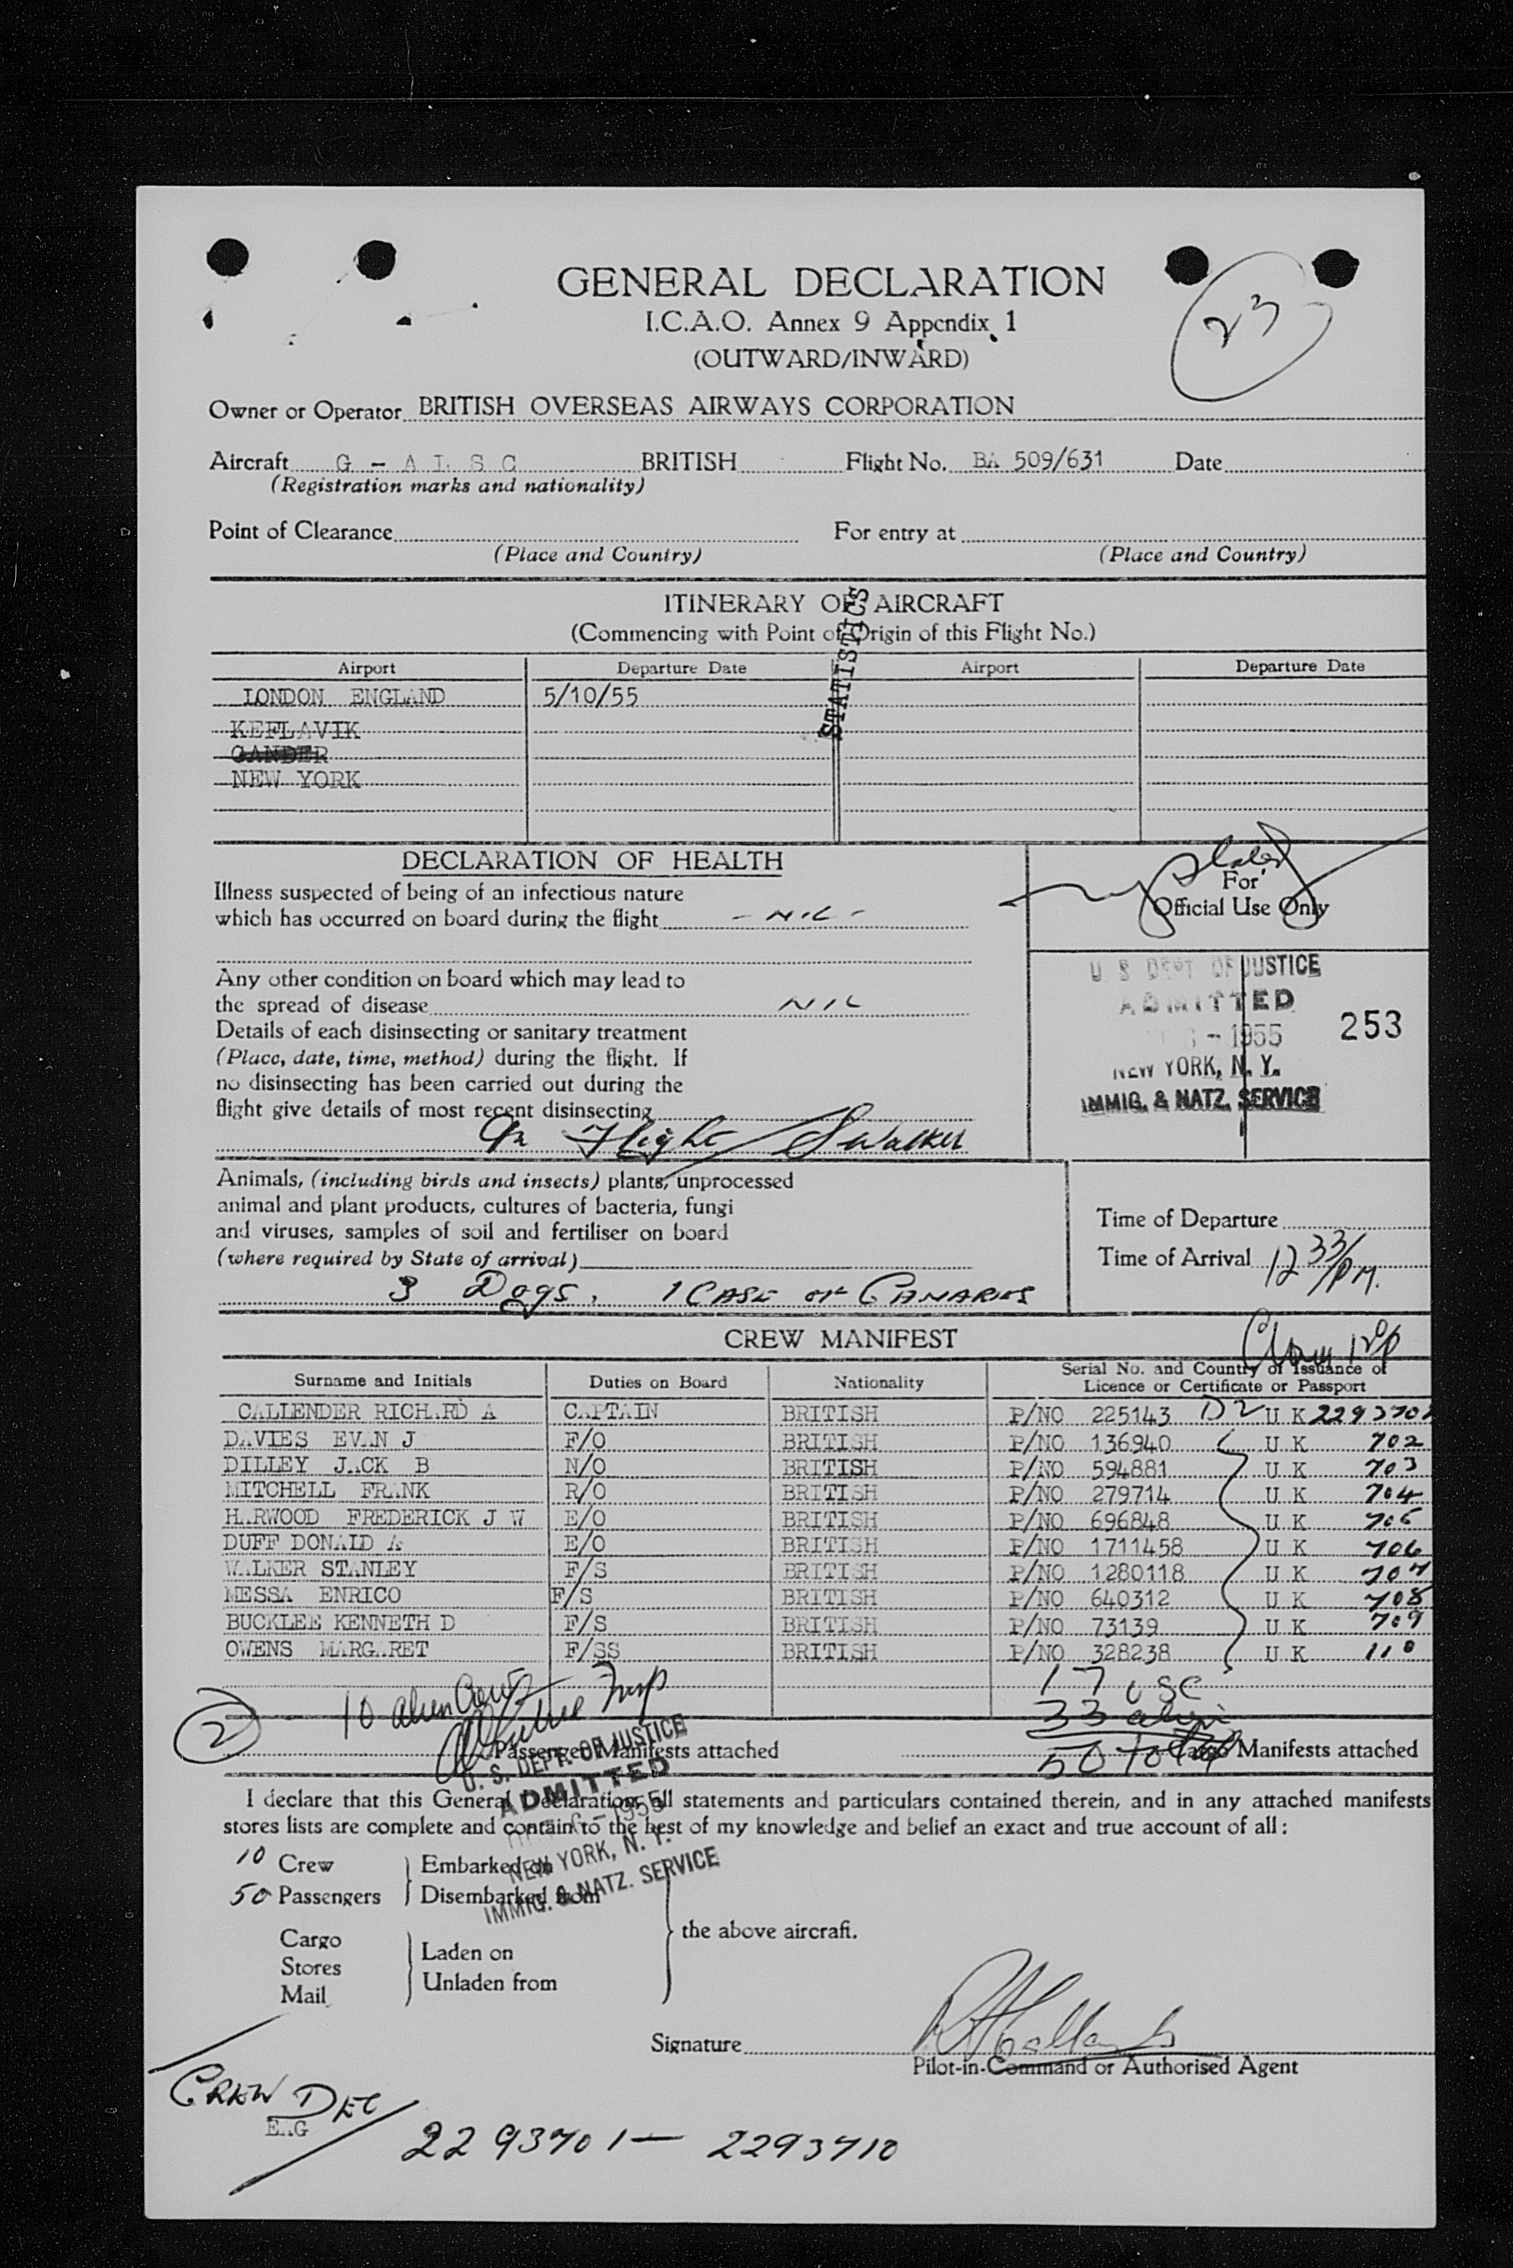 23
GENERAL DECLARATION
I.C.A.O. Annex 9 Appendix 1
(OUTWARD/INWARD)
Owner or Operator BRITISH OVERSEAS AIRWAYS CORPORATION
Aircraft G - A L S C BRITISH Flight No. BA 509/631 Date
(Registration marks and nationality)
Point of Clearance For entry at
(Place and Country) (Place and Country)
ITINERARY OF AIRCRAFT
(Commencing with Point of Origin of this Flight No.)
STATISTICS
Airport Departure Date Airport Departure Date
LONDON ENGLAND 5/10/55
KEFLAVIK
GANDER
NEW YORK
DECLARATION OF HEALTH
Illness suspected of being of an infectious nature
which has occurred on board during the flight - NIL -
For
Official Use Only
Any other condition on board which may lead to
the spread of disease NIL
Details of each disinsecting or sanitary treatment
(Place, date, time, method) during the flight. If
no disinsecting has been carried out during the
flight give details of most recent disinsecting
In Flight S Walker
U S DEPT OF JUSTICE
ADMITTED
6 - 1955
253
NEW YORK, N. Y.
IMMIG. & NATZ. SERVICE
Animals, (including birds and insects) plants, unprocessed
animal and plant products, cultures of bacteria, fungi
and viruses, samples of soil and fertiliser on board
(where required by State of arrival)
3 Dogs, 1 CASE OF CANARIES
Time of Departure
Time of Arrival 12 33/PM.
CREW MANIFEST
Surname and Initials Duties on Board Nationality Serial No. and Country of Issuance of
Licence or Certificate or Passport
CALLENDER RICHARD A CAPTAIN BRITISH P/NO 225143 D2 U K 2293701
DAVIES EVAN J F/O BRITISH P/NO 136940 U K 702
DILLEY JACK B N/O BRITISH P/NO 594881 U K 703
MITCHELL FRANK R/O BRITISH P/NO 279714 U K 704
HARWOOD FREDERICK J W E/O BRITISH P/NO 696848 U K 705
DUFF DONALD A E/O BRITISH P/NO 1711458 U K 706
WALKER STANLEY F/S BRITISH P/NO 1280118 U K 707
MESSA ENRICO F/S BRITISH P/NO 640312 U K 708
BUCKLEE KENNETH D F/S BRITISH P/NO 73139 U K 709
OWENS MARGARET F/SS BRITISH P/NO 328238 U K 110
17 USC
2 - 10 alien Crew
Insp
33 alien
50 total
Passenger Manifests attached Cargo Manifests attached
U. S. DEPT. OF JUSTICE
ADMITTED
6 - 1955
NEW YORK, N. Y.
IMMIG. & NATZ. SERVICE
I declare that this General Declaration, all statements and particulars contained therein, and in any attached manifests
stores lists are complete and contain to the best of my knowledge and belief an exact and true account of all :
10 Crew Embarked on
50 Passengers Disembarked from
the above aircraft.
Cargo
Stores
Mail
Laden on
Unladen from
Signature
Pilot-in-Command or Authorised Agent
CREW DEC
E.G
2293701 — 2293710